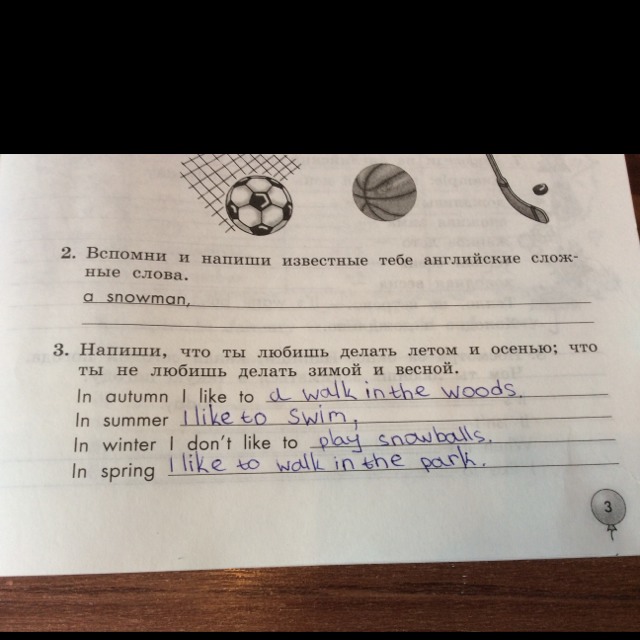 2. Вспомни и напиши известные тебе английские слож-
ные слова.
a snowman,
3. Напиши, что ты любишь делать летом и осенью; что
ты не любишь делать зимой и весной.
In autumn I like to a walk in the woods.
In summer I like to swim,
In winter I don't like to play snowballs.
In spring I like to walk in the park.
3